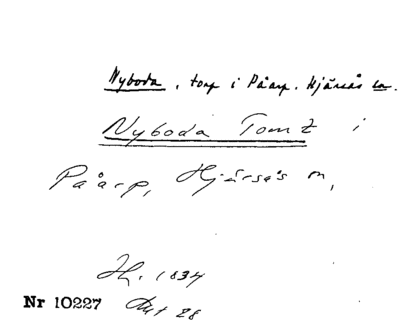 Nyboda, torp i Påarp. Hjärsås sn.
Nyboda Tomt i
Påarp, Hjärsås sn,
H. 1834
Nr 10227 Akt 28